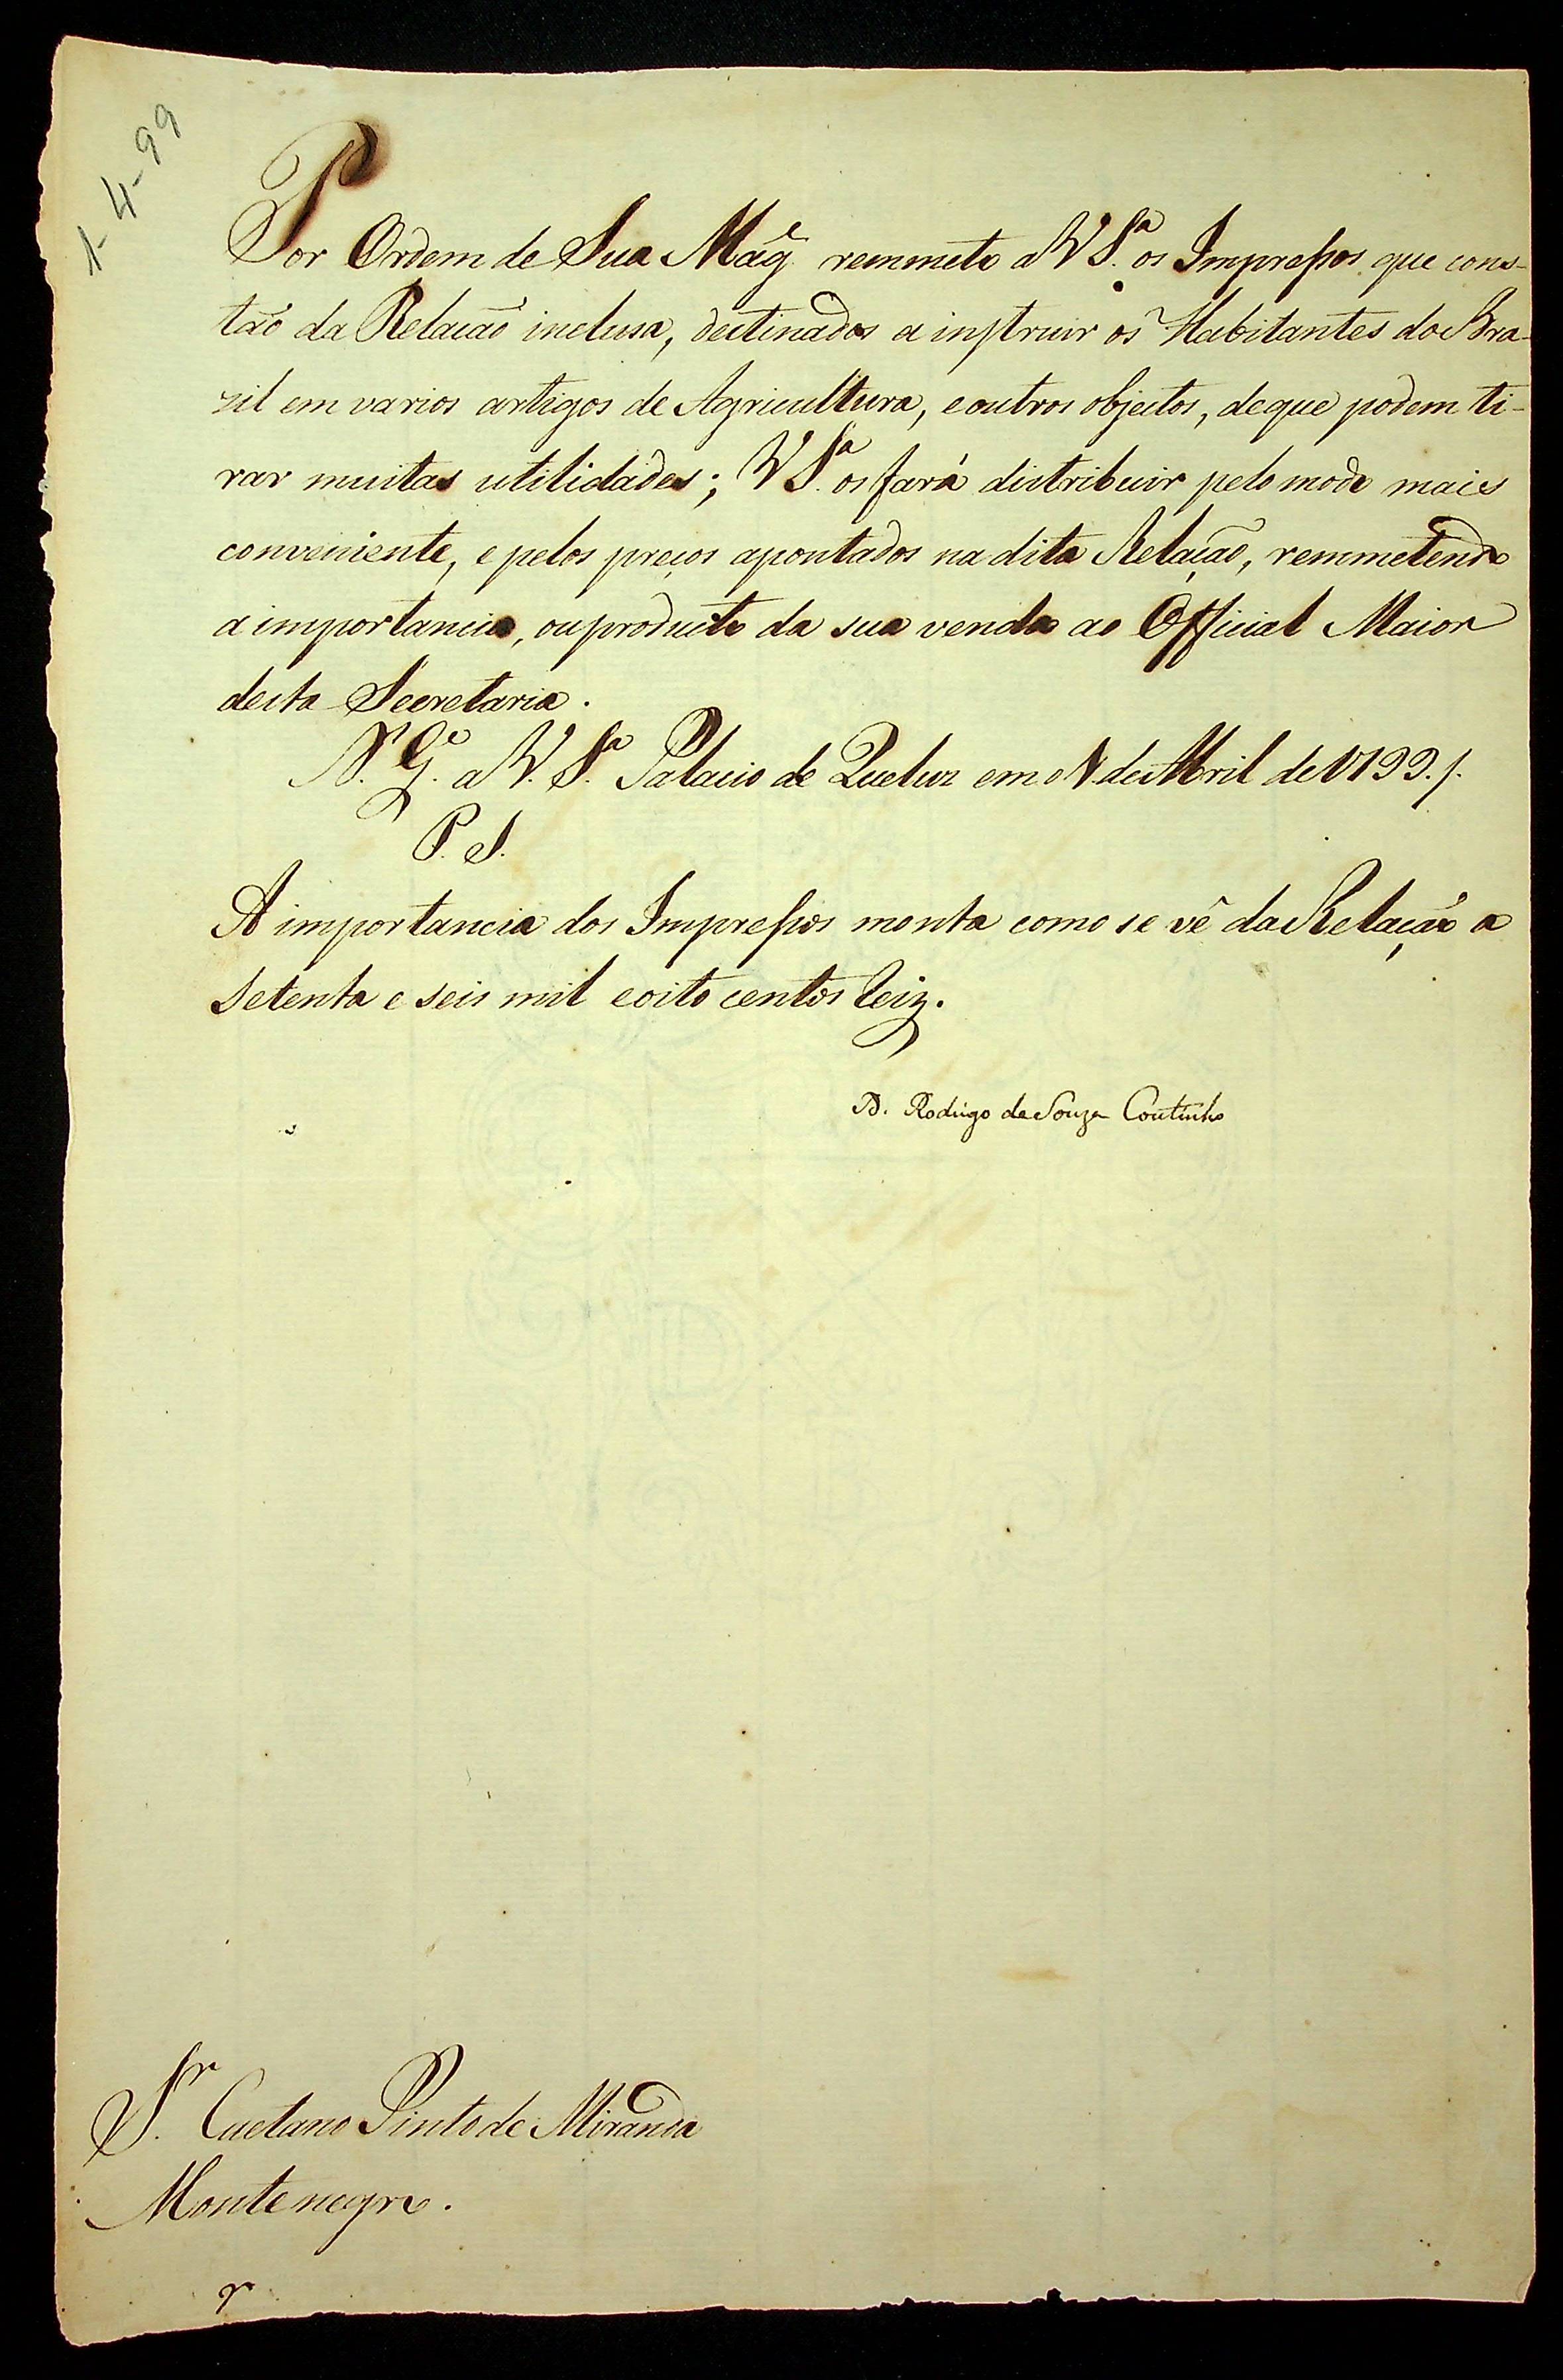 1-4-99
Por Ordem de Sua Mag.e remmeto a V S.a os Impressos que cons-
tão da Relação inclusa, destinados a instruir os Habitantes do Bra-
zil em varios artigos de Agricultura, e outros objectos, de que podem ti-
rar muitas utilidades; V S.a os fará distribuir pelo modo mais
conveniente, e pelos preços apontados na dita Relação, remmetendo
a importancia, ou producto da sua venda ao Official Maior
desta Secretaria.
D.s G.e a V. S.a Palacio de Queluz em 1 de Abril de 1799./.
P. S.
A importancia dos Impressos monta como se vê da Relação a
setenta e seis mil e oito centos reiz.
D. Rodrigo de Souza Coutinho
S.r Caetano Pinto de Miranda
Montenegro.